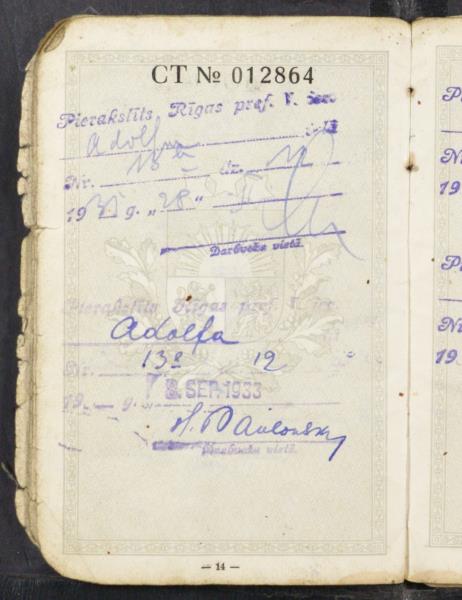 CT № 012864
Pierakstīts Rīgas pref. V. iec.
Adolf
Nr. 13a dz.
19 g. „28"
Darbveža vietā.
Pierakstīts Rīgas pref. V. iec.
Adolfa
Nr. 13a 12
19 g. SEP. 1933
Darbveža vietā.
— 14 —
P
Nr
19
P
Nr
19